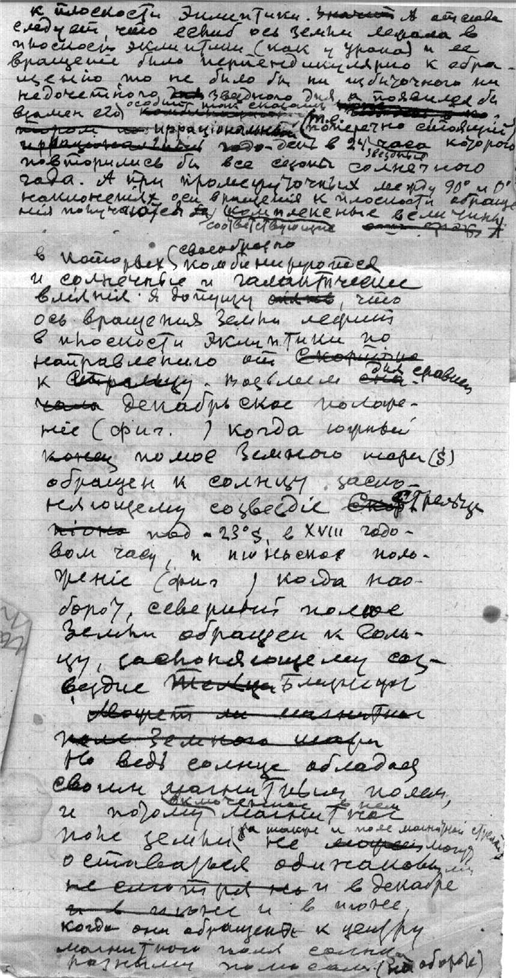 к плоскости эклиптики. Значит А отсюда
следует, что если б ось Земли лежала в
плоскости эклиптики (как у урана) и ее
вращение было перпендикулярно к обра-
щению то не было бы ни обычного ни
звездного дня, а появился бы
взамен его особый так сказать
иррациональный (т.е. поперечно стоящий)
день в 24 часа которого
повторились бы все сезоны солнечного
года. А при промежуточных между 90° и 0°
наклонениях оси вращения к плоскости обраще-
ния получаются бы комплексные величины
соответствующие
в которых своеобразно комбинируются
и солнечные и галактические
влияния. Я допущу что
ось вращения Земли лежит
в плоскости эклиптики по
направлению от Скорпиона
к Стрельцу. Возьмем для сравнен
декабрьское положе-
ние (фиг. ) когда южный
конец полюс Земного шара (S)
обращен к солнцу засло-
няющему созвездие Стрельца
под -23°S, в XVIII годо-
вом часу, и июньское поло-
жение (фиг ) когда нао-
борот, северный полюс
Земли обращен к Солн-
цу, заслоняющему соз-
вездие Тельца Близнецы
Может ли магнитное
поле Земного шара
Но ведь солнце обладает
своим магнитным полем,
и потому включенное в нем магнитное
поле земли, а также и поле магнитной стрелки не могут
оставаться одинаковыми
не смотря на и в декабре
и в июне и в июне,
когда они обращены к центру
магнитного поля солнца
разными полюсами (наоборот)